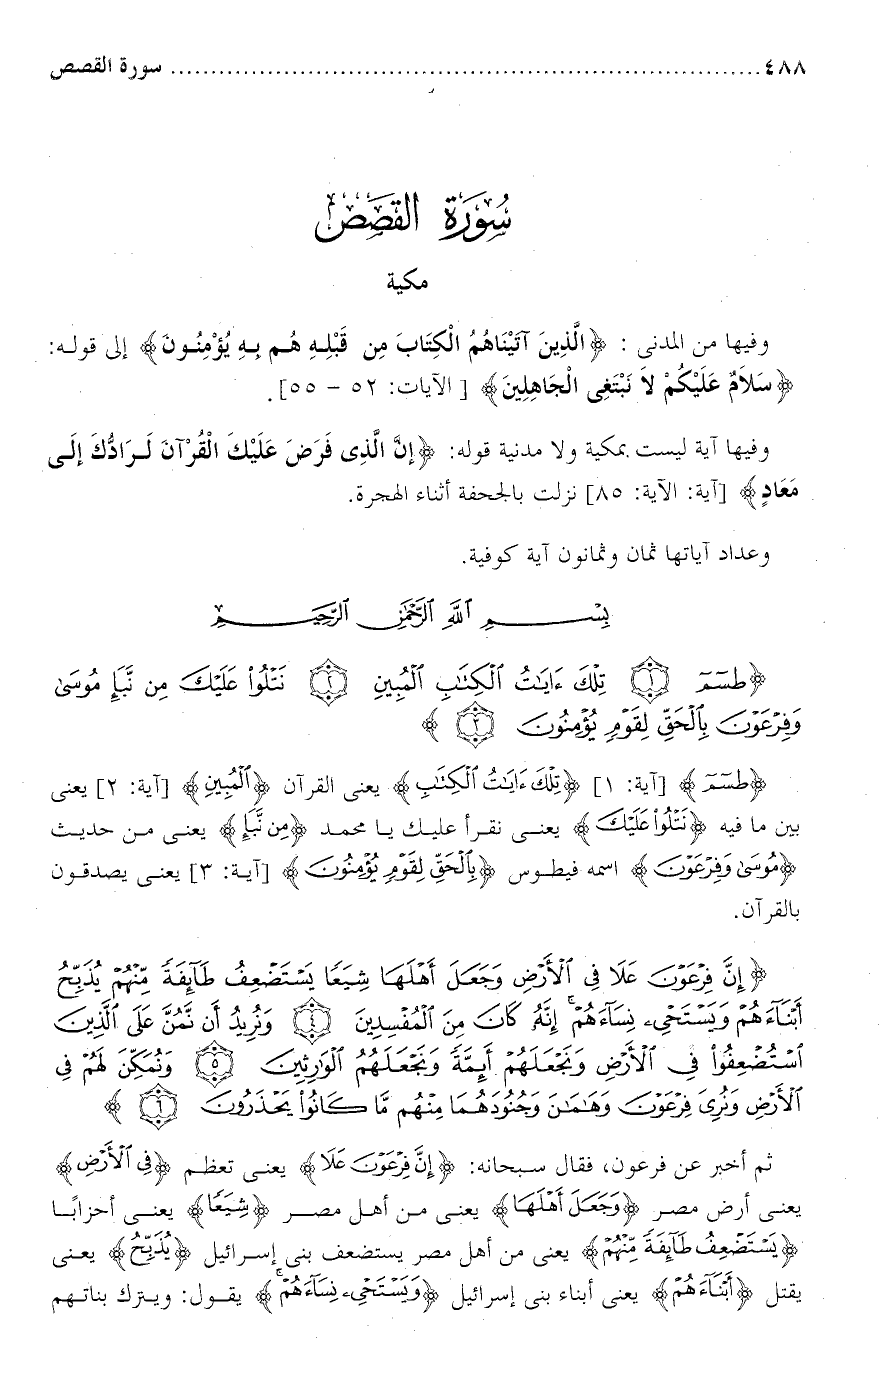 ٤٨٨ ........................................................................ سورة القصص
سُورَةُ القَصَصِ
مكية
وفيها من المدنى : ﴿الَّذِينَ آتَيْنَاهُمُ الْكِتَابَ مِن قَبْلِهِ هُم بِهِ يُؤْمِنُونَ﴾ إلى قوله:
﴿سَلاَمٌ عَلَيْكُمْ لاَ نَبْتَغِى الْجَاهِلِينَ﴾ [ الآيات: ٥٢ – ٥٥].
وفيها آية ليست بمكية ولا مدنية قوله: ﴿إِنَّ الَّذِى فَرَضَ عَلَيْكَ الْقُرْآنَ لَرَادُّكَ إِلَى
مَعَادٍ﴾ [آية: الآية: ٨٥] نزلت بالجحفة أثناء الهجرة.
وعداد آياتها ثمان وثمانون آية كوفية.
بِسْمِ اللَّهِ الرَّحْمَٰنِ الرَّحِيمِ
﴿طسٓمٓ ١ تِلْكَ ءَايَٰتُ ٱلْكِتَٰبِ ٱلْمُبِينِ ٢ نَتْلُوا۟ عَلَيْكَ مِن نَّبَإِ مُوسَىٰ
وَفِرْعَوْنَ بِٱلْحَقِّ لِقَوْمٍ يُؤْمِنُونَ ٣ ﴾
﴿طسٓمٓ﴾ [آية: ١] ﴿تِلْكَ ءَايَٰتُ ٱلْكِتَٰبِ﴾ يعنى القرآن ﴿ٱلْمُبِينِ﴾ [آية: ٢] يعنى
بين ما فيه ﴿نَتْلُوا۟ عَلَيْكَ﴾ يعنى نقرأ عليك يا محمد ﴿مِن نَّبَإِ﴾ يعنى من حديث
﴿مُوسَىٰ وَفِرْعَوْنَ﴾ اسمه فيطوس ﴿بِٱلْحَقِّ لِقَوْمٍ يُؤْمِنُونَ﴾ [آية: ٣] يعنى يصدقون
بالقرآن.
﴿إِنَّ فِرْعَوْنَ عَلَا فِى ٱلْأَرْضِ وَجَعَلَ أَهْلَهَا شِيَعًا يَسْتَضْعِفُ طَآئِفَةً مِّنْهُمْ يُذَبِّحُ
أَبْنَآءَهُمْ وَيَسْتَحْىِۦ نِسَآءَهُمْ ۚ إِنَّهُۥ كَانَ مِنَ ٱلْمُفْسِدِينَ ٤ وَنُرِيدُ أَن نَّمُنَّ عَلَى ٱلَّذِينَ
ٱسْتُضْعِفُوا۟ فِى ٱلْأَرْضِ وَنَجْعَلَهُمْ أَئِمَّةً وَنَجْعَلَهُمُ ٱلْوَٰرِثِينَ ٥ وَنُمَكِّنَ لَهُمْ فِى
ٱلْأَرْضِ وَنُرِىَ فِرْعَوْنَ وَهَٰمَٰنَ وَجُنُودَهُمَا مِنْهُم مَّا كَانُوا۟ يَحْذَرُونَ ٦ ﴾
ثم أخبر عن فرعون، فقال سبحانه: ﴿إِنَّ فِرْعَوْنَ عَلَا﴾ يعنى تعظم ﴿فِى ٱلْأَرْضِ﴾
يعنى أرض مصر ﴿وَجَعَلَ أَهْلَهَا﴾ يعنى من أهل مصر ﴿شِيَعًا﴾ يعنى أحزابًا
﴿يَسْتَضْعِفُ طَآئِفَةً مِّنْهُمْ﴾ يعنى من أهل مصر يستضعف بنى إسرائيل ﴿يُذَبِّحُ﴾ يعنى
يقتل ﴿أَبْنَآءَهُمْ﴾ يعنى أبناء بنى إسرائيل ﴿وَيَسْتَحْىِۦ نِسَآءَهُمْ ۚ﴾ يقول: ويترك بناتهم